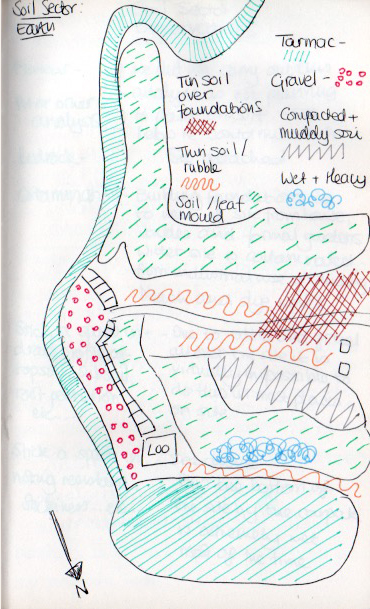 Soil Sector:
EARTH
Tarmac -
Gravel -
Tin soil
over
foundations
Compacted +
muddy soil
Thin soil /
rubble
Wet + Heavy
Soil / leaf
mould
LOO
N